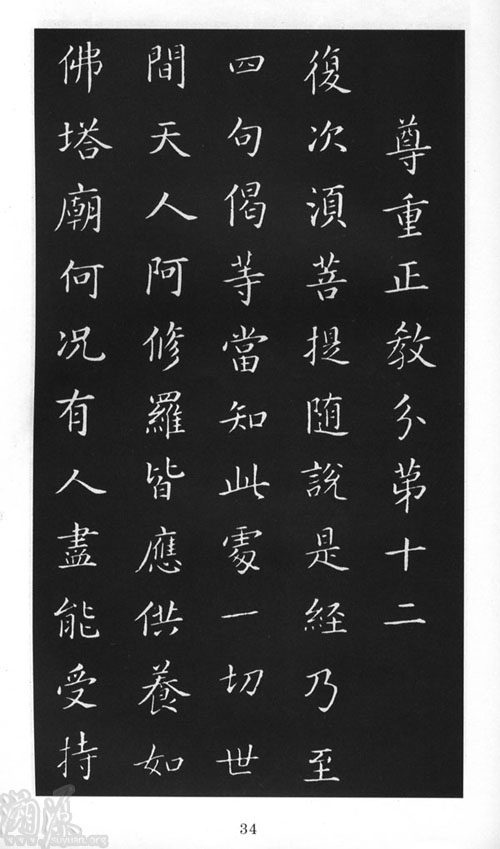 尊重正教分苐十二
復次湏菩提随說是経乃至
四句偈等當知此處一切世
間天人阿修羅皆應供養如
佛塔廟何况有人盡能受持
34